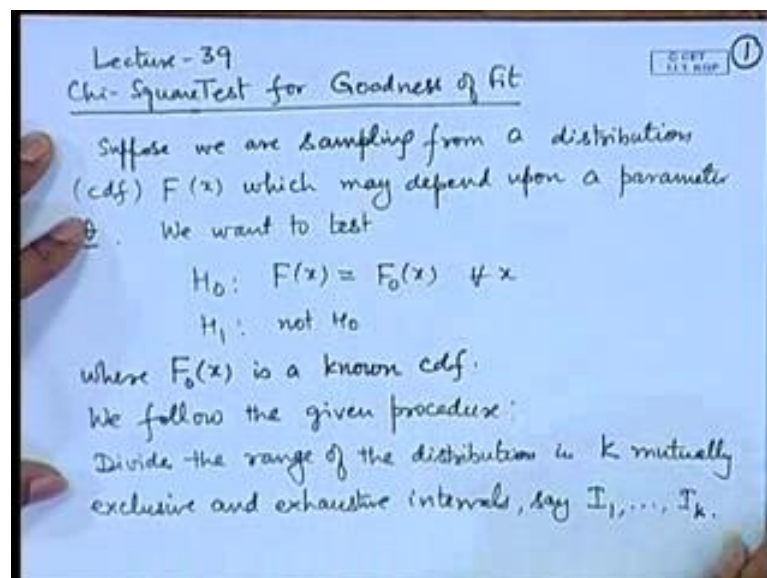 Lecture - 39
Chi-Square Test for Goodness of Fit
1
© CET
I.I.T. KGP
Suppose we are sampling from a distribution
(cdf) F(x) which may depend upon a parameter
θ. We want to test
H₀: F(x) = F₀(x) ∀ x
H₁: not H₀
where F₀(x) is a known cdf.
We follow the given procedure:
Divide the range of the distribution in k mutually
exclusive and exhaustive intervals, say I₁, ..., Iₖ.